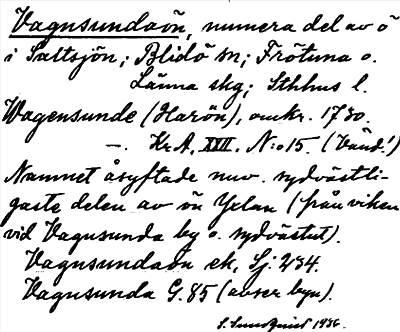 Vagnsundaön, numera del av ö
i Saltsjön; Blidö sn; Frötuna o.
Länna skg; Sthlms l.
Wagensunde (Harön), omkr. 1730.
—. Kr.A. XXII. N:o 15. (Vänd!)
Namnet åsyftade nuv. sydvästli-
gaste delen av ön Yxlan (från viken
vid Vagnsunda by o. sydvästut).
Vagnsundaön ek. Sj. 234.
Vagnsunda G. 85 (avser byn).
S. Sundquist 1936.